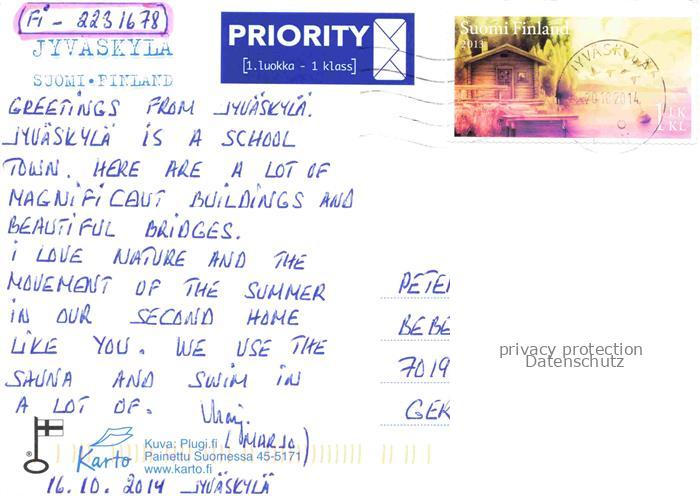 Fi - 2231678
JYVÄSKYLÄ
SUOMI • FINLAND
PRIORITY
[1.luokka - 1 klass]
Suomi Finland
2013
1 LK
1 KL
JYVÄSKYLÄ
20.10.2014
GREETINGS FROM JYVÄSKYLÄ.
JYVÄSKYLÄ IS A SCHOOL
TOWN. HERE ARE A LOT OF
MAGNIFICAUT BUILDINGS AND
BEAUTIFUL BRIDGES.
i LOVE NATURE AND THE
MOVEMENT OF THE SUMMER
IN OUR SECOND HOME
LIKE YOU. WE USE THE
SAUNA AND SWIM IN
A LOT OF.
(MARJO)
PETE
BEBE
7019
GER
privacy protection
Datenschutz
Karto
Kuva: Plugi.fi
Painettu Suomessa 45-5171
www.karto.fi
16.10.2014 JYVÄSKYLÄ